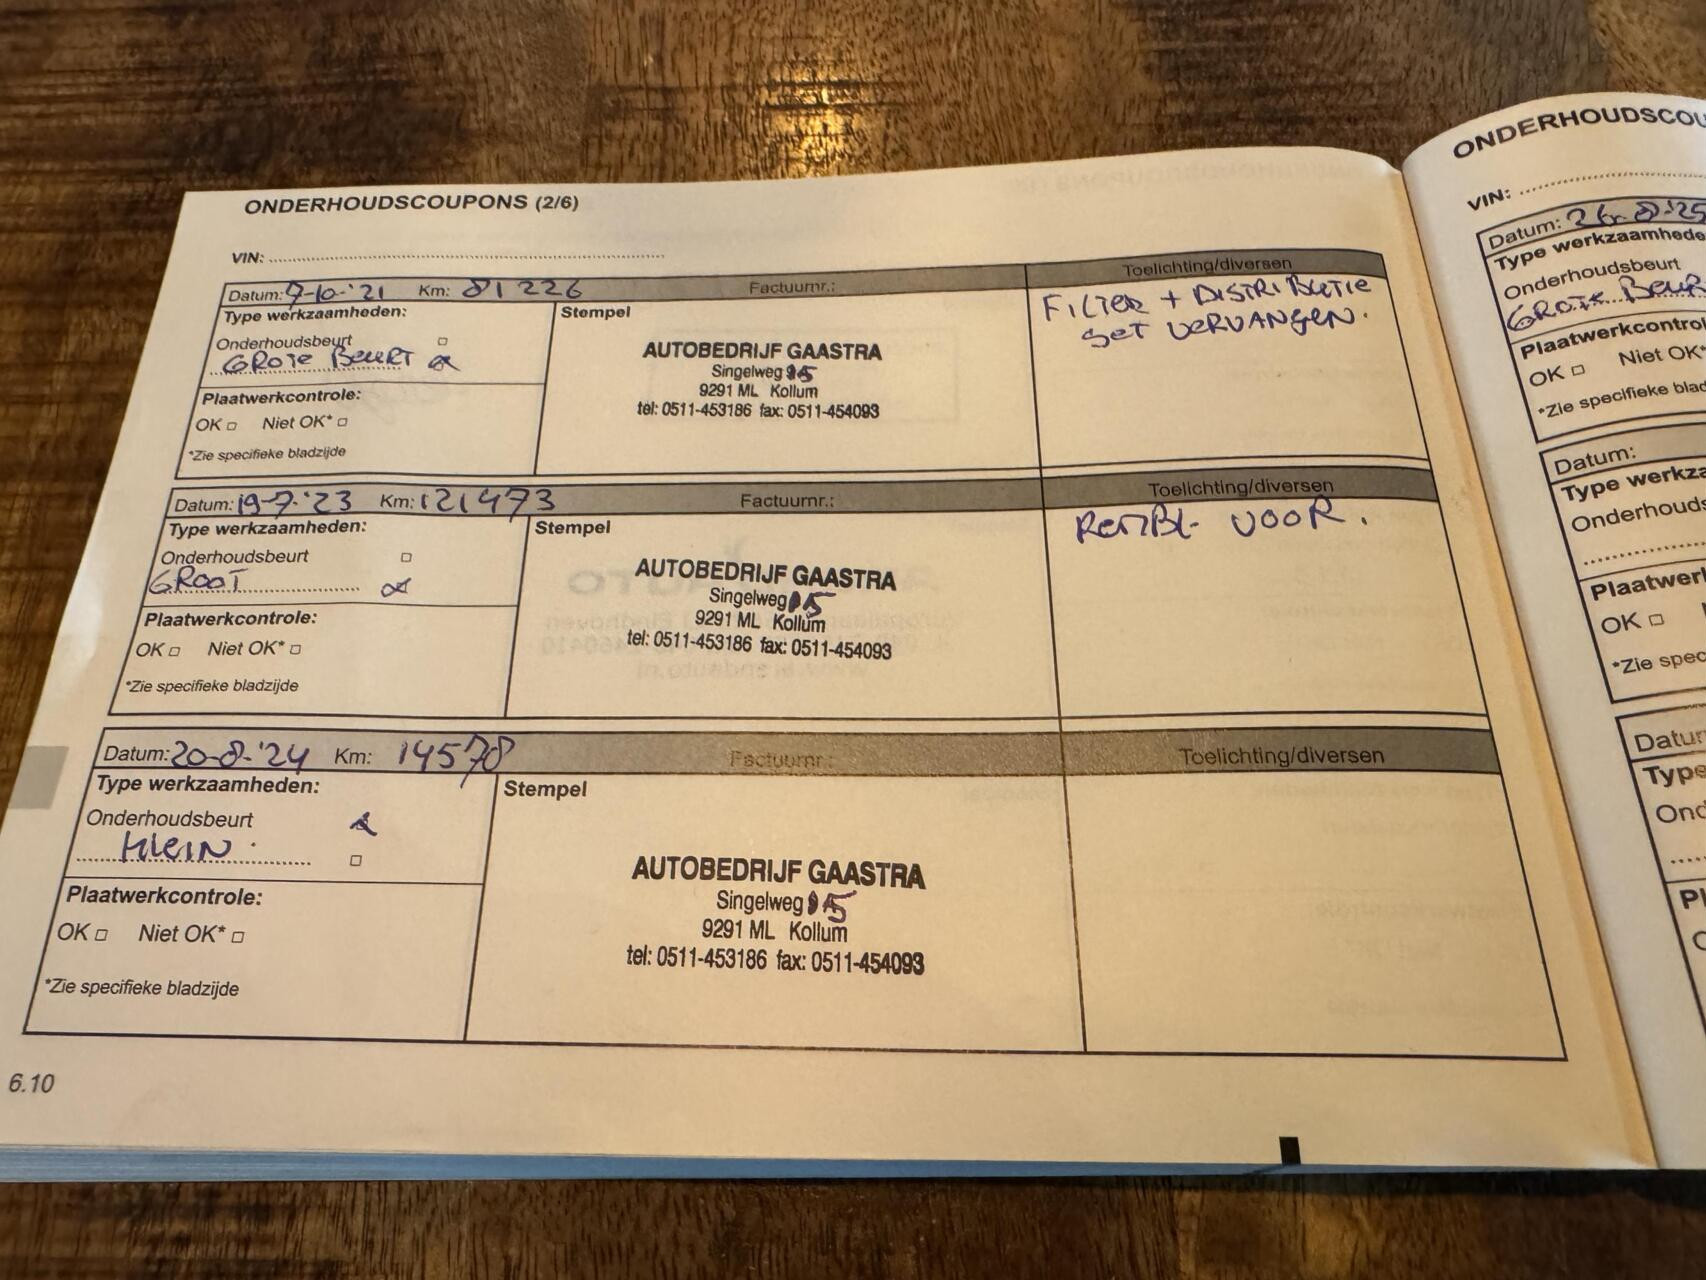 ONDERHOUDSCOUPONS (2/6)
VIN:
Datum: 7-10-'21 Km: 81226 Factuurnr.: Toelichting/diversen
Type werkzaamheden: Stempel
Onderhoudsbeurt
GROTE BEURT
Plaatwerkcontrole:
OK Niet OK*
*Zie specifieke bladzijde
AUTOBEDRIJF GAASTRA
Singelweg 15
9291 ML Kollum
tel: 0511-453186 fax: 0511-454093
FILTER + DISTRIBUTIE
SET VERVANGEN.
Datum: 19-7-'23 Km: 121473 Factuurnr.: Toelichting/diversen
Type werkzaamheden: Stempel
Onderhoudsbeurt
GROOT
Plaatwerkcontrole:
OK Niet OK*
*Zie specifieke bladzijde
AUTOBEDRIJF GAASTRA
Singelweg 15
9291 ML Kollum
tel: 0511-453186 fax: 0511-454093
REMBL. VOOR.
Datum: 20-8-'24 Km: 14578 Factuurnr.: Toelichting/diversen
Type werkzaamheden: Stempel
Onderhoudsbeurt
KLEIN.
Plaatwerkcontrole:
OK Niet OK*
*Zie specifieke bladzijde
AUTOBEDRIJF GAASTRA
Singelweg 15
9291 ML Kollum
tel: 0511-453186 fax: 0511-454093
6.10
ONDERHOUDSCOU
VIN:
Datum: 26-8-'25
Type werkzaamhede
Onderhoudsbeurt
GROTE BEUR
Plaatwerkcontrol
OK Niet OK*
*Zie specifieke blad
Datum:
Type werkza
Onderhouds
Plaatwerk
OK
*Zie spec
Datu
Type
Ond
Pl